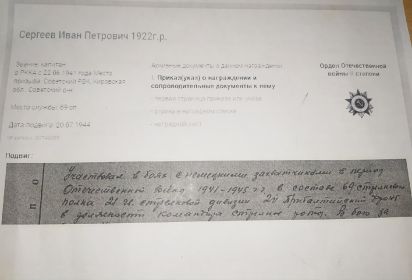 Сергеев Иван Петрович 1922г.р.
Звание: капитан
в РККА с 22.06.1941 года Место
призыва: Советский РВК, Кировская
обл., Советский р-н
Место службы: 69 сп
Дата подвига: 20.07.1944
Архивные документы о данном награждении:
I. Приказ(указ) о награждении и
сопроводительные документы к нему
- первая страница приказа или указа
- строка в наградном списке
- наградной лист
Орден Отечественной
войны II степени
Подвиг:
П О
Участвовал в боях с немецкими захватчиками в период
Отечественной войны 1941-1945 г.г. в составе 69 стрелков
полка 21 гв. стрелковой дивизии 2й Прибалтийский Фронт
в должности командира стрелк. роты. В бою за